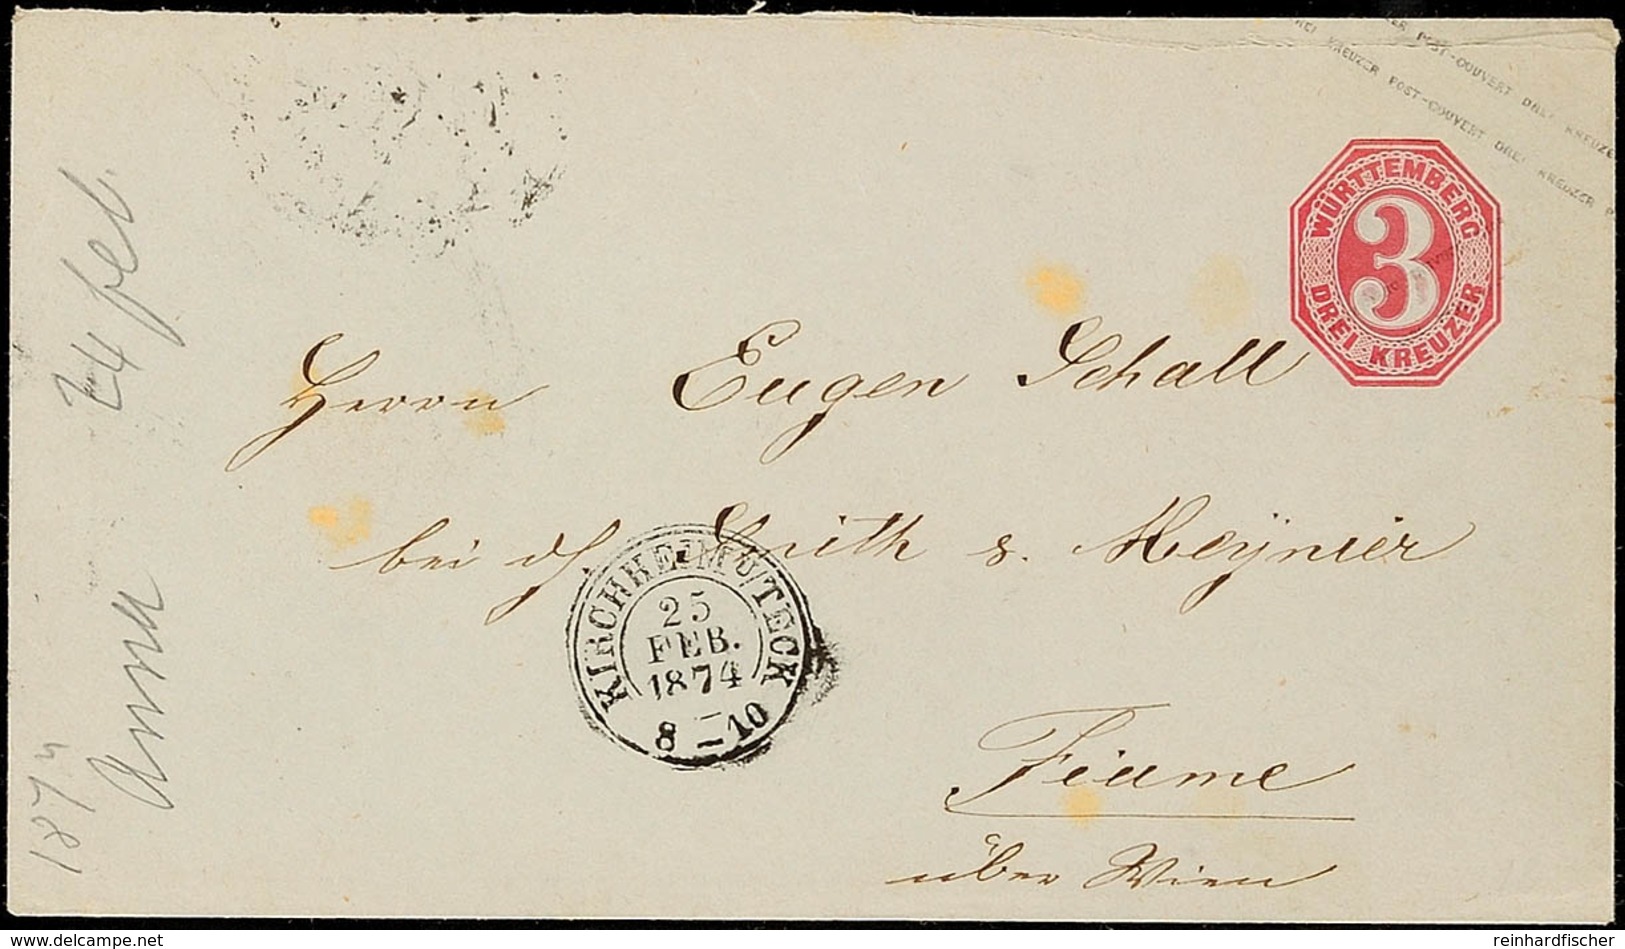 DREI KREUZER POST-COUVERT DREI KREUZER
POST-COUVERT DREI KREUZER
WÜRTTEMBERG
3
DREI KREUZER
Herrn Eugen Schall
bei Smith & Meynier
Fiume
über Wien
KIRCHHEIM U/TECK
25
FEB.
1874
8-10
1874
Anna 24 feb.
www.delcampe.net
reinhardfischer